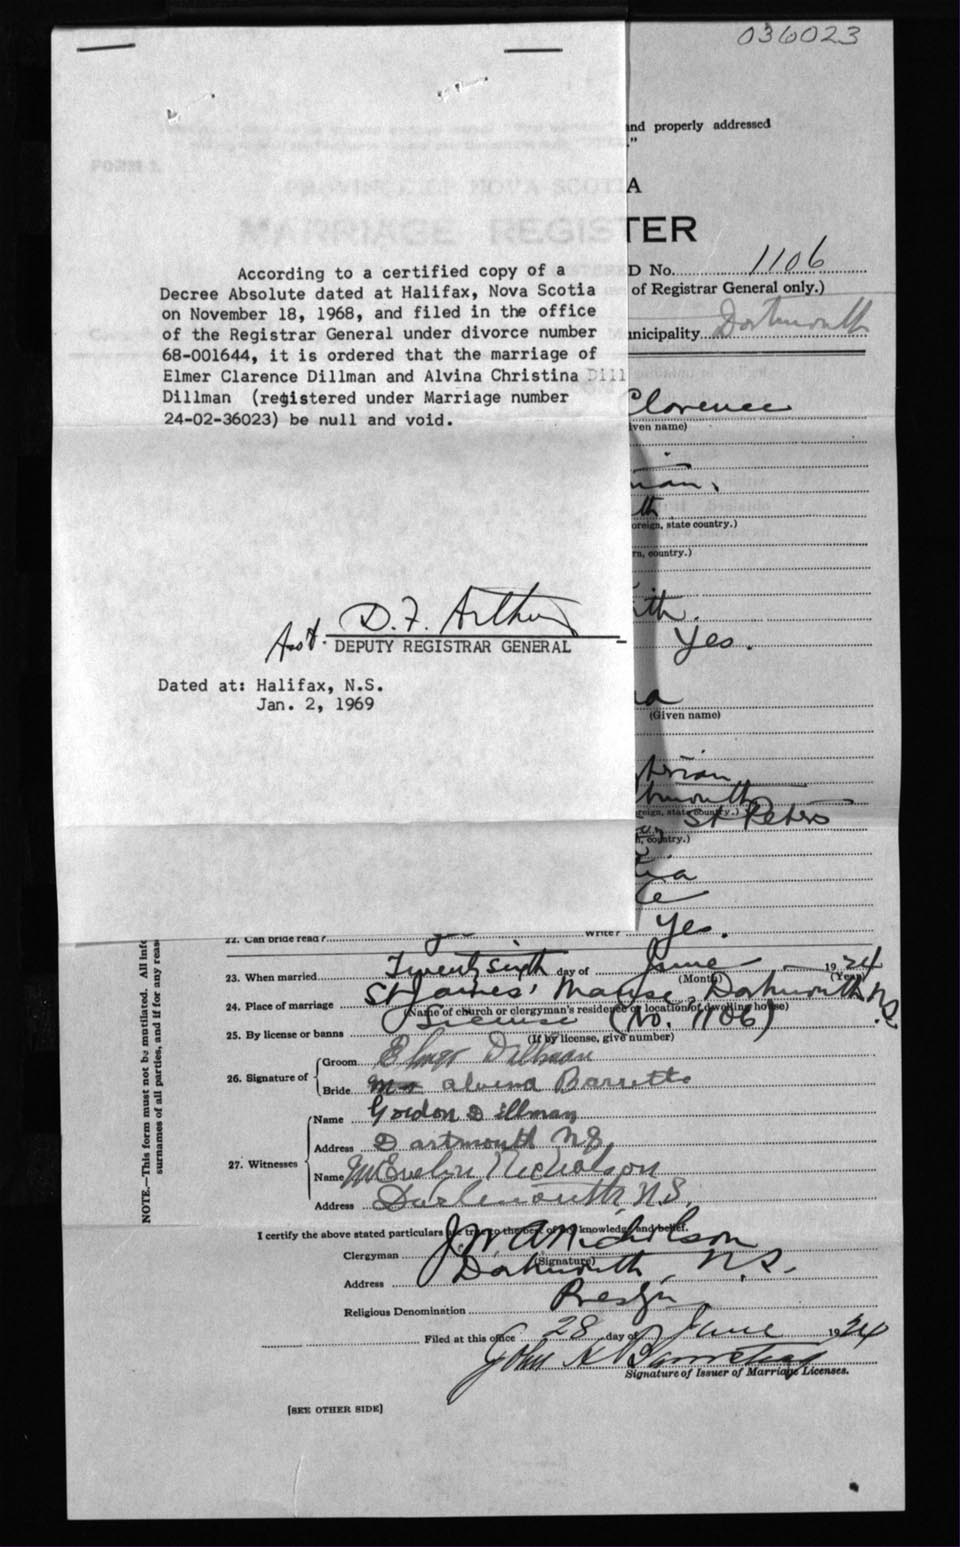 036023
and properly addressed
"
FORM 1.
PROVINCE OF NOVA SCOTIA
MARRIAGE REGISTER
D No. 1106
of Registrar General only.)
unicipality Dartmouth
According to a certified copy of a
Decree Absolute dated at Halifax, Nova Scotia
on November 18, 1968, and filed in the office
of the Registrar General under divorce number
68-001644, it is ordered that the marriage of
Elmer Clarence Dillman and Alvina Christina Dill
Dillman (registered under Marriage number
24-02-36023) be null and void.
Clarence
ven name)
oreign, state country.)
rn, country.)
th.
Yes.
Asst. D.F. Arthur
DEPUTY REGISTRAR GENERAL
Dated at: Halifax, N.S.
Jan. 2, 1969
na
(Given name)
terian
tmouth
reign, state country.) St Peters
n, country.)
22. Can bride read? yes write? Yes.
23. When married Twenty sixth day of June 1924
(Month) (Year)
24. Place of marriage St James' Manse, Dartmouth N.S.
(Name of church or clergyman's residence or location of dwelling house)
25. By license or banns License (No. 1106)
(If by license, give number)
26. Signature of Groom Elmer Dillman
Bride alvena Barrette
27. Witnesses Name Gordon Dillman
Address Dartmouth N.S.
Name Evelyn Nicholson
Address Dartmouth N.S.
I certify the above stated particulars are true to the best of my knowledge and belief.
Clergyman J.W. A Nicholson
(Signature)
Address Dartmouth, N.S.
Religious Denomination Presbyn
Filed at this office 28 day of June 1924
John
Signature of Issuer of Marriage Licenses.
[SEE OTHER SIDE]
NOTE.—This form must not be mutilated. All info
surnames of all parties, and if for any reas